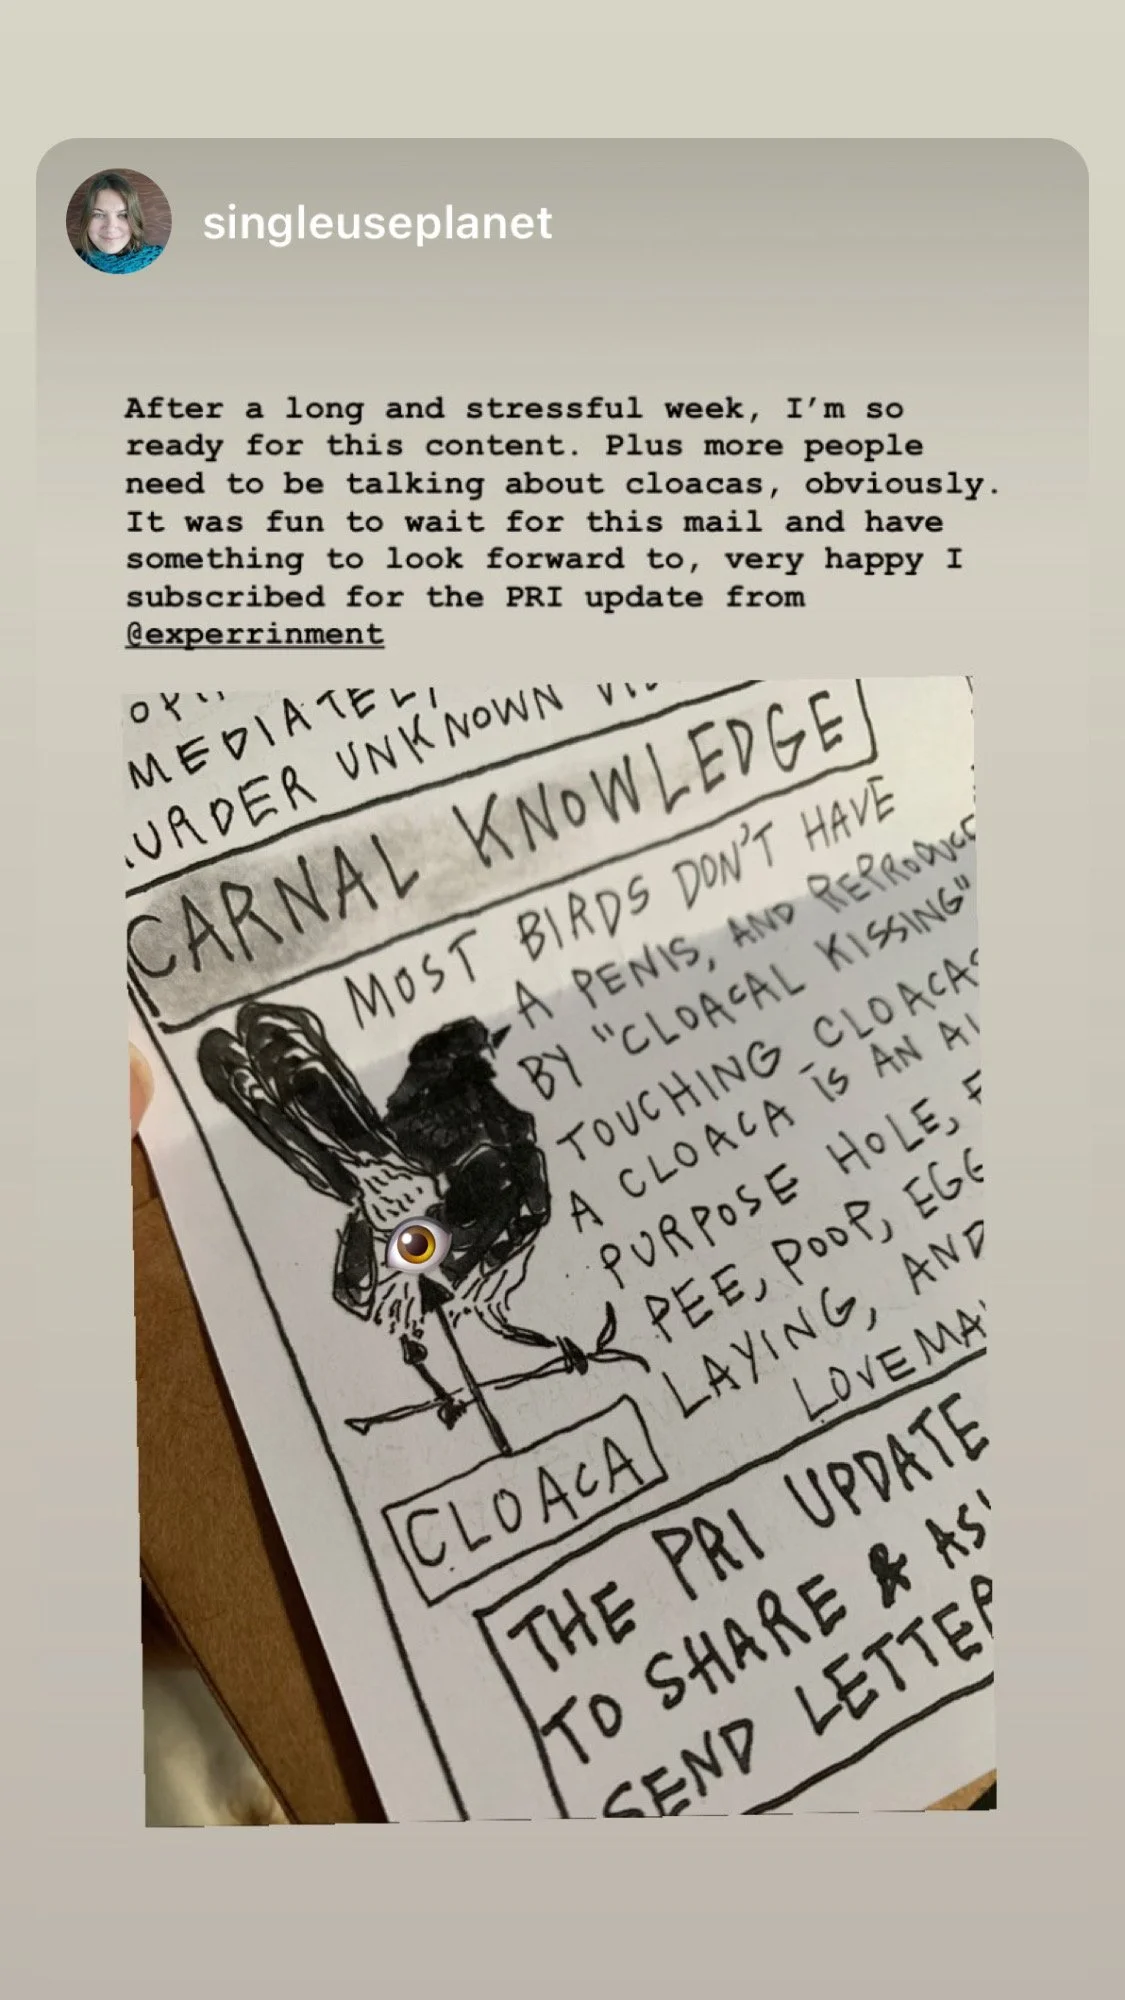 singleuseplanet
After a long and stressful week, I’m so
ready for this content. Plus more people
need to be talking about cloacas, obviously.
It was fun to wait for this mail and have
something to look forward to, very happy I
subscribed for the PRI update from
@experrinment
MEDIATELY
URDER UNKNOWN
CARNAL KNOWLEDGE
MOST BIRDS DON'T HAVE
A PENIS, AND REPRODUCE
BY "CLOACAL KISSING"
TOUCHING CLOACAS
A CLOACA IS AN
PURPOSE HOLE,
PEE, POOP, EGG
LAYING, AND
LOVEMA
CLOACA
THE PRI UPDATE
TO SHARE & AS
SEND LETTER